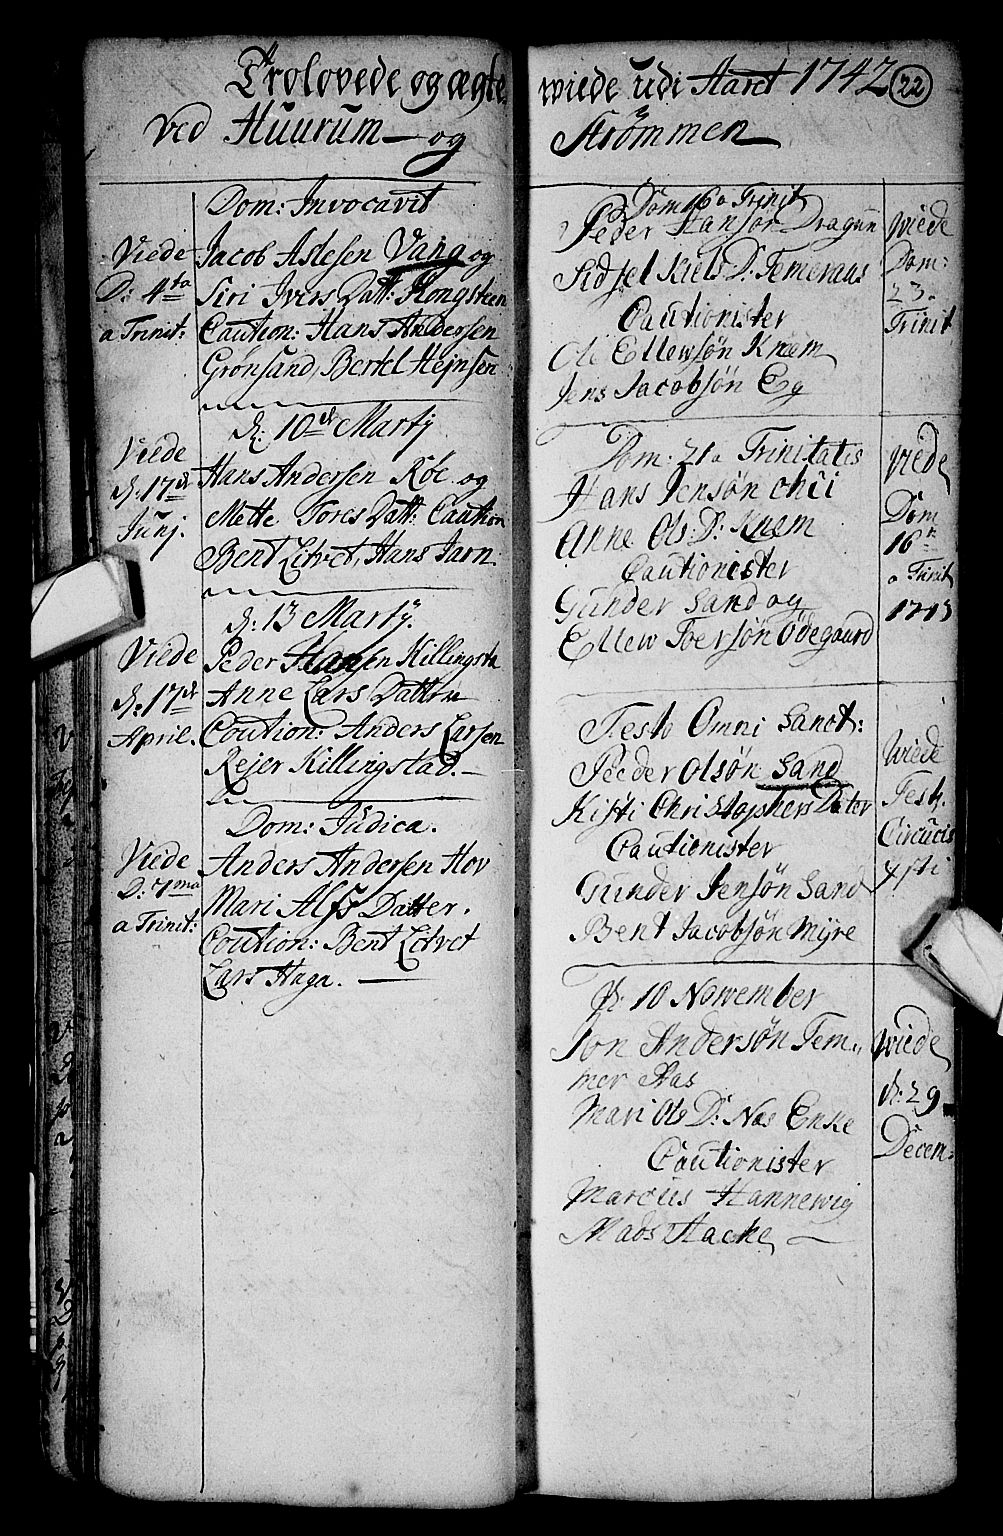 Trolovede og ægte wiede udi Aaret 1742 22
Ved Huurum og Strømmen
Dom: Invocavit
Viede
D: 4ta
a Trinit:
Jacob Aslesen Vang og
Siri Ivers Datt: Kongsteen
Caution: Hans Andersen
Grønsand, Bertel Hejnsen
d: 10de Martj
Viede
d: 17de
Junj.
Hans Andersen Röe og
Mette Tores Datt: Caution
Bent Litvet, Hans Jarn
d: 13 Martj.
Viede
d: 17de
April.
Peder Hansen Killingsta
Anne Lars Datter
Coution: Anders Larsen
Rejer Killingstad.
Dom: Judica.
Viede
D: 7ma
a Trinit:
Anders Andersen Hov
Mari Alfs Datter.
Coution: Bent Litvet
Lars Haga.
Dom 16 a Trinit
Peder Hansøn Dragun
Sidsel Niels D: Temeraas
Cautionister
Ole Ellewsøn Knem
Jens Jacobsøn Eg
wiede
Dom:
23 a
Trinit
Dom: 21 a Trinitatis
Hans Jensøn
Anne Ols: D: Knem
Cautionister
Gunder Sand og
Ellew Toersøn Ödegaard
wiede
Dom
16
a Trinit
1743
Festo Omni Sanct:
Peeder Olsøn Sand
Kisti Christophers Dater
Cautionister
Gunder Jensøn Sand
Bent Jacobsøn Myre
wiede
Fest.
Circucis
Xsti
d: 18 November
Jon Andersøn Tem
mer Aas
Mari Ols D: Nas Enke
Cautionister
Marcus Hannewig
Mads Aacke
wiede
d: 29
Decem: